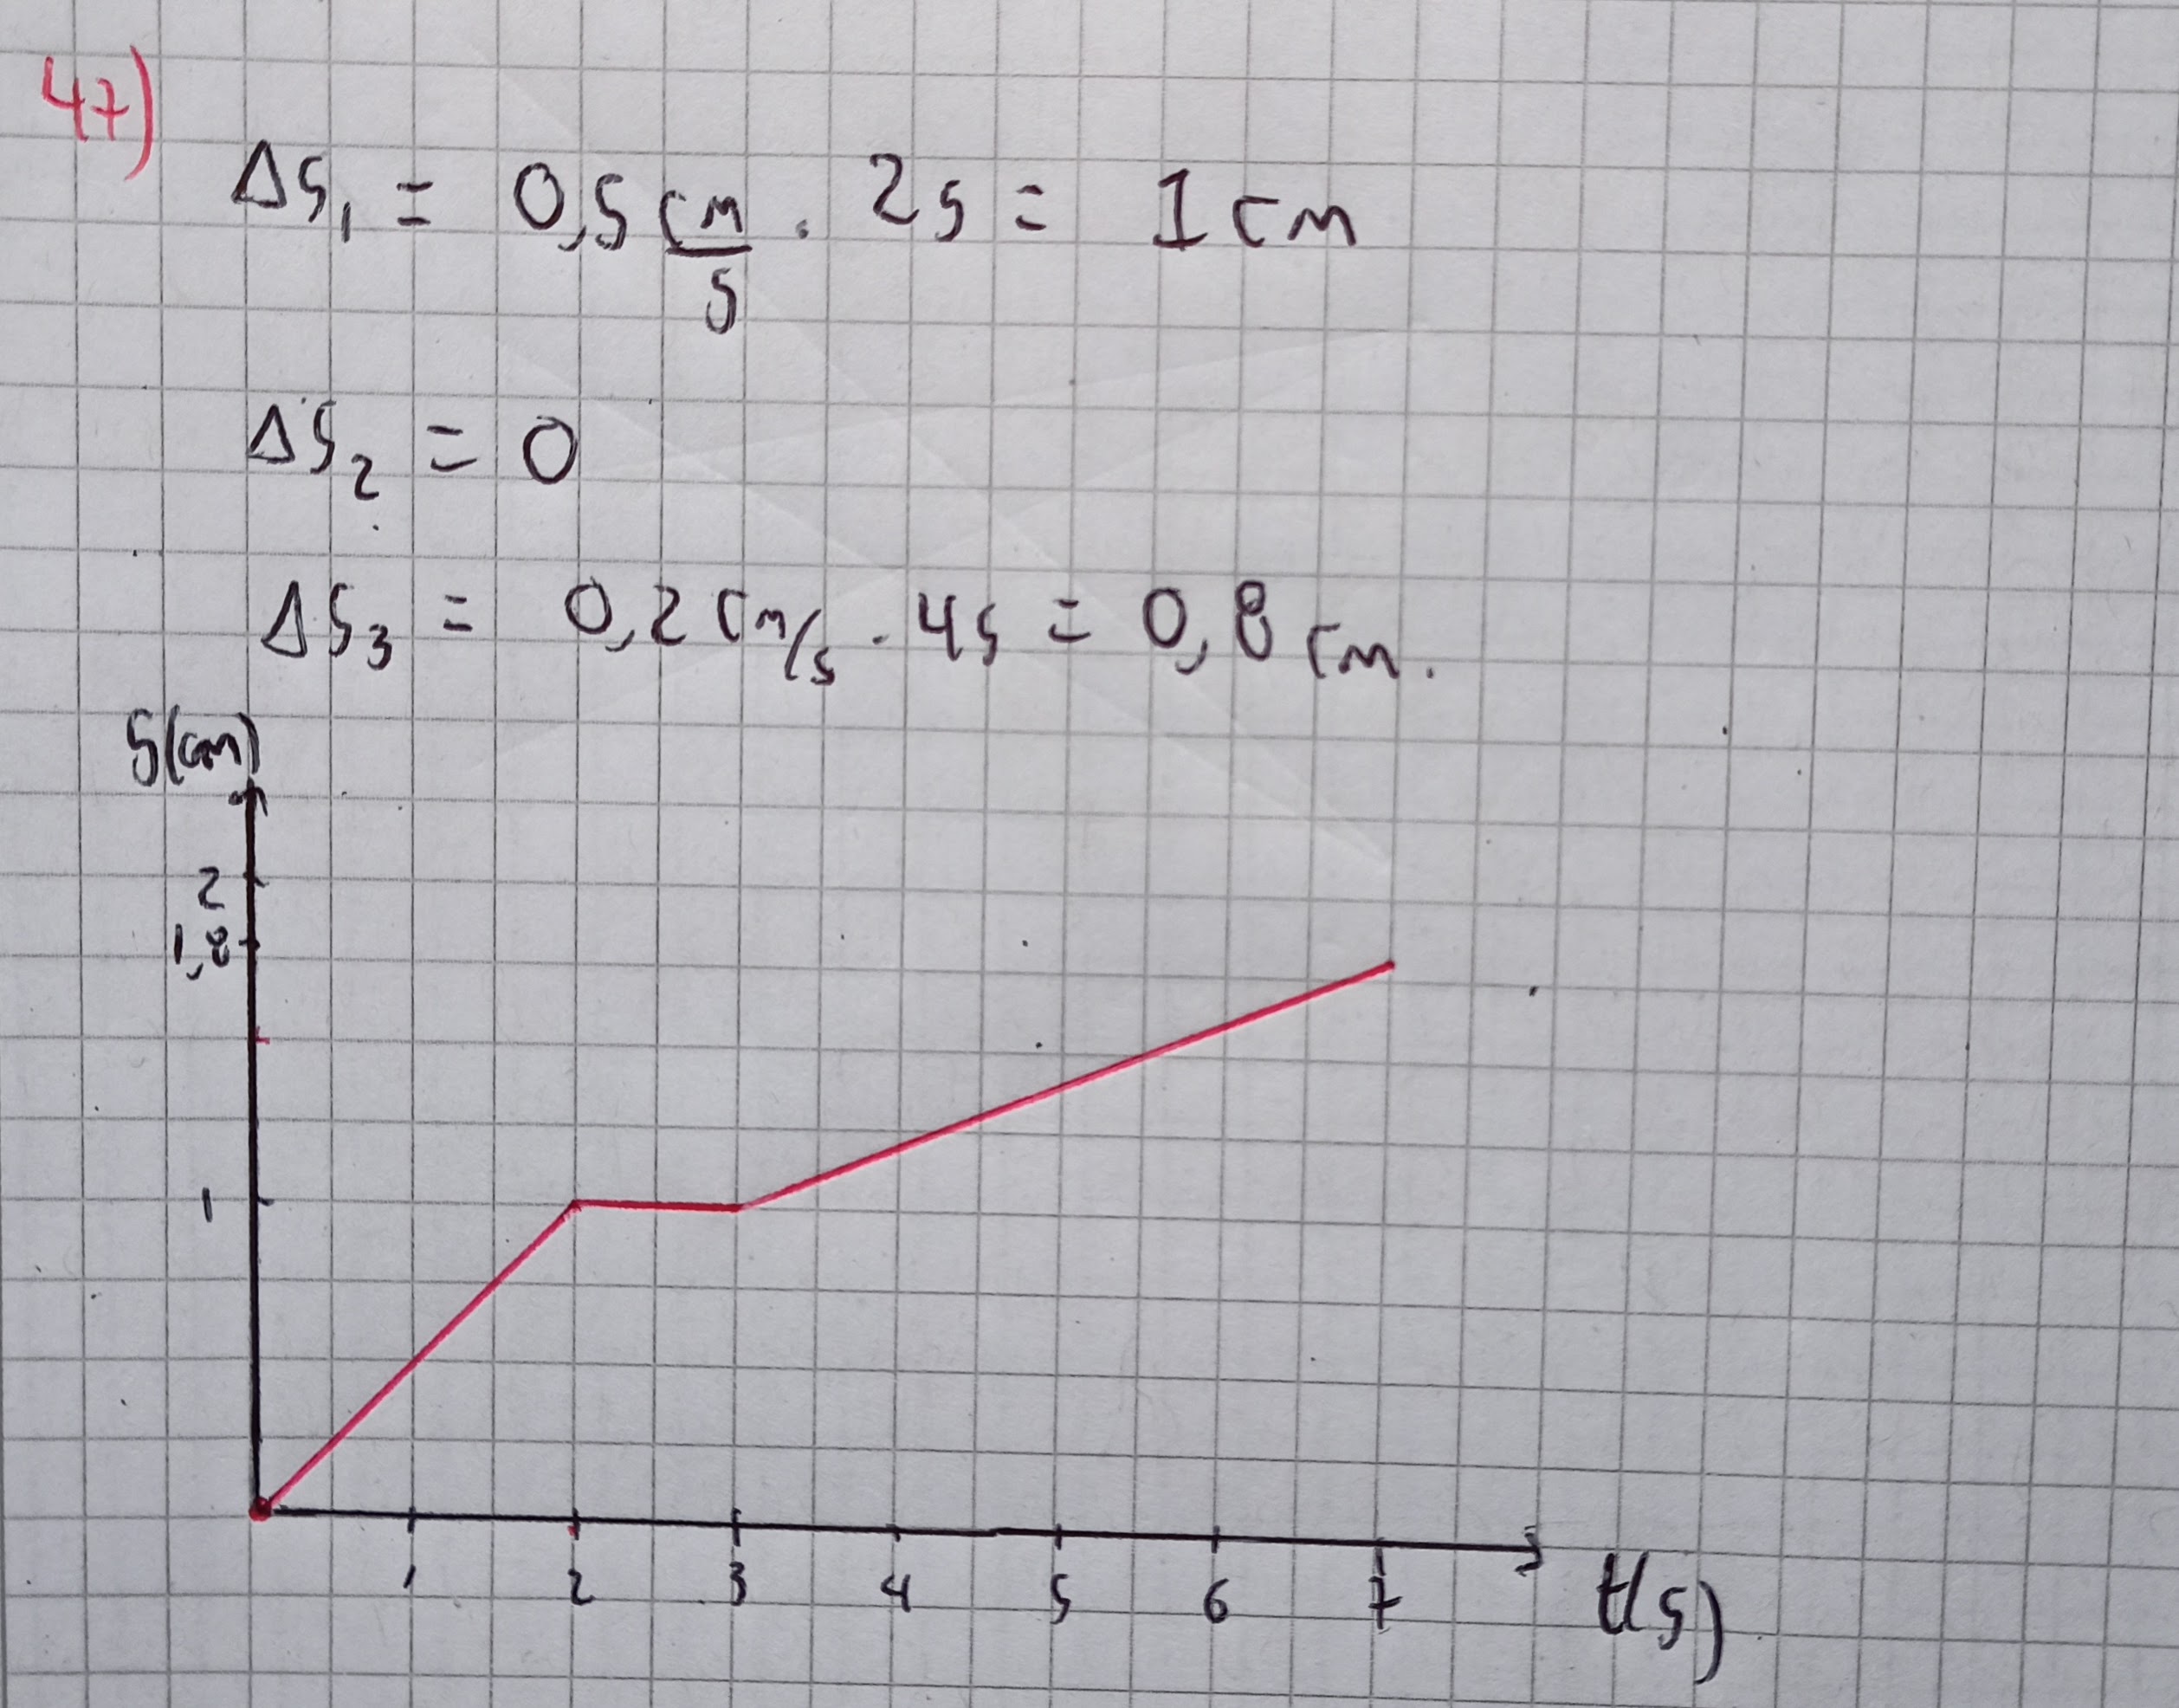 47)
Δs₁ = 0,5 cm/s · 2s = 1 cm
Δs₂ = 0
Δs₃ = 0,2 cm/s · 4s = 0,8 cm.
s(cm)
2
1,8
1
1 2 3 4 5 6 7 t(s)